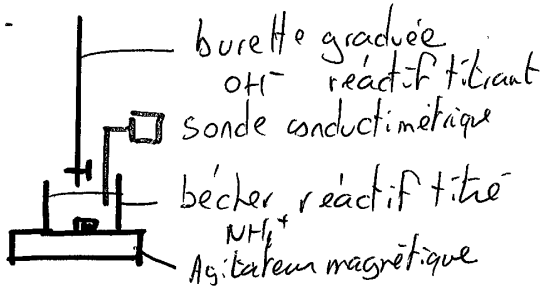 burette graduée
OH⁻ réactif titrant
sonde conductimétrique
bécher réactif titré
NH₄⁺
Agitateur magnétique